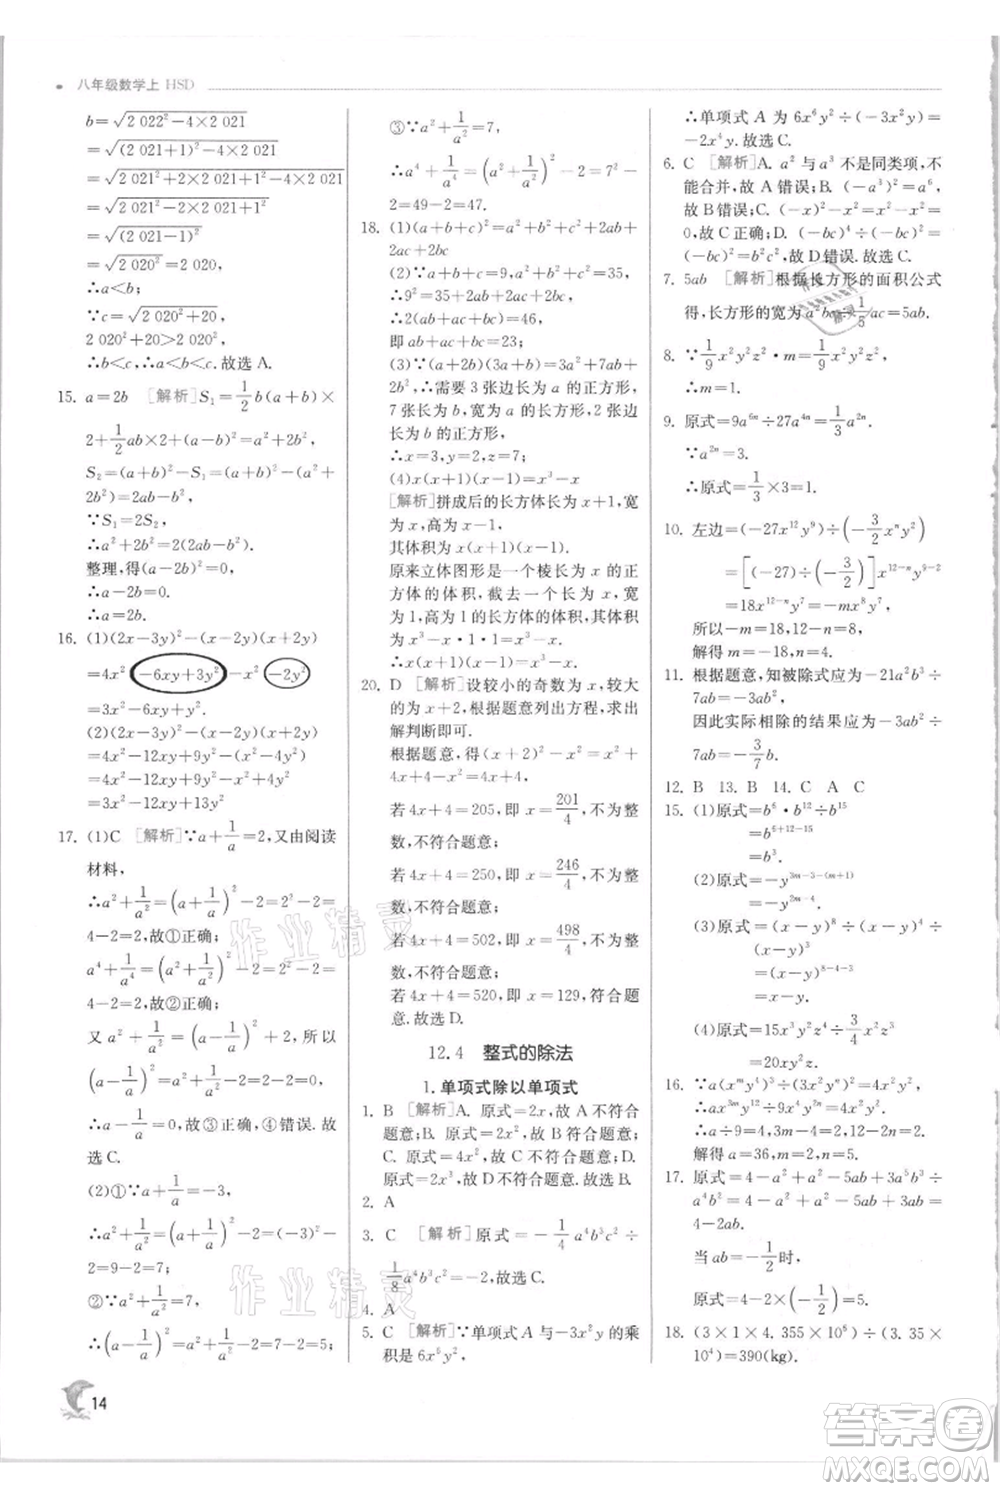 八年级数学上 HSD
b=√(2 022²-4×2 021)
=√((2 021+1)²-4×2 021)
=√(2 021²+2×2 021+1²-4×2 021)
=√(2 021²-2×2 021+1²)
=√((2 021-1)²)
=√(2 020²),
∴a<b;
∵c=√(2 020²+20),
2 020²+20>2 020²,
∴b<c,∴a<b<c.故选A.
15. a=2b [解析]S₁=1/2 b(a+b)×
2+1/2 ab×2+(a-b)²=a²+2b²,
S₂=(a+b)²-S₁=(a+b)²-(a²+
2b²)=2ab-b²,
∵S₁=2S₂,
∴a²+2b²=2(2ab-b²).
整理,得(a-2b)²=0.
∴a-2b=0.
∴a=2b.
16. (1)(2x-3y)²-(x-2y)(x+2y)
=4x²-6xy+3y²-x²-2y²
=3x²-6xy+y².
(2)(2x-3y)²-(x-3y)(x+3y)
=4x²-12xy+9y²-(x²-9y²)
=4x²-12xy+9y²-x²+9y²
=3x²-12xy+18y².
17. (1)C [解析]∵a+1/a=2,又由阅读
材料,
∴a²+1/a²=(a+1/a)²-2=2²-2=
4-2=2,故①正确;
a⁴+1/a⁴=(a²+1/a²)²-2=2²-2=
4-2=2,故②正确;
又 a²+1/a²=(a-1/a)²+2,所以
(a-1/a)²=a²+1/a²-2=2-2=0,
∴a-1/a=0,故③正确,④错误.故
选C.
(2)①∵a+1/a=-3,
∴a²+1/a²=(a+1/a)²-2=(-3)²-
2=9-2=7;
②∵a²+1/a²=7,
∴(a-1/a)²=a²+1/a²-2=7-2=5;
③∵a²+1/a²=7,
∴a⁴+1/a⁴=(a²+1/a²)²-2=7²-
2=49-2=47.
18. (1)(a+b+c)²=a²+b²+c²+2ab+
2ac+2bc
(2)∵a+b+c=9,a²+b²+c²=35,
∴9²=35+2(ab+ac+bc).
∴2(ab+ac+bc)=46,
即ab+ac+bc=23;
(3)∵(a+2b)(3a+b)=3a²+7ab+2b²,
∴需要3张边长为a的正方形,
7张长为b,宽为a的长方形,2张边长
为b的正方形,
∴x=3,y=2,z=7;
(4)x(x+1)(x-1)=x³-x
[解析]拼成后的长方体长为x+1,宽
为x,高为x-1,
其体积为x(x+1)(x-1).
原来立体图形是一个棱长为x的正
方体的体积,截去一个长为x,宽为
1,高为1的长方体的体积,余下部分
的体积为x³-x·1·1=x³-x,
∴x(x+1)(x-1)=x³-x.
20. D [解析]设较小的奇数为x,较大
的为x+2,根据题意列出方程,求出
解判断即可.
根据题意,得(x+2)²-x²=(x+2-x)·
(x+2+x)=4x+4.
若4x+4=205,即x=201/4,不为整
数,不符合题意;
若4x+4=250,即x=246/4,不为整
数,不符合题意;
若4x+4=502,即x=498/4,不为整
数,不符合题意;
若4x+4=520,即x=129,符合题
意.故选D.
12.4 整式的除法
1.单项式除以单项式
1. B [解析]A. 原式=2x,故A不符合
题意;B. 原式=2x²,故B符合题意;
C. 原式=4x²,故C不符合题意;D.
原式=-2x²,故D不符合题意.故选B.
2. A
3. C [解析]原式=-1/4 a⁶b⁴c²÷
1/8 a⁴b³c²=-2a²b,故选C.
4. A
5. C [解析]∵单项式A与-3x²y的乘
积是6x⁶y²,
∴单项式A为6x⁶y²÷(-3x²y)=
-2x⁴y.故选C.
6. C [解析]A. a²与a³不是同类项,不
能合并,故A错误;B. (-a³)²=a⁶,
故B错误;C. (-x)²-x²=x²-x²=
0,故C正确;D. (-bc)⁴÷(-bc)²=
(-bc)²=b²c²,故D错误.故选C.
7. 5ab [解析]根据长方形的面积公式
得,长方形的宽为a²bc÷1/5 ac=5ab.
8. ∵1/9 x²·m=1/9 x²÷1=1/9 x²,
∴m=1.
9. 原式=9a⁶ⁿ÷27a⁴ⁿ=1/3 a²ⁿ.
∵a²ⁿ=3.
∴原式=1/3×3=1.
10. 左边=(-27x¹²y⁹)÷(-3/2 xⁿy²)
=[(-27)÷(-3/2)]x¹²⁻ⁿy⁹⁻²
=18x¹²⁻ⁿy⁷=-mx⁸y⁷,
所以-m=18,12-n=8,
解得m=-18,n=4.
11. 根据题意,知被除式应为-21a²b³÷
7ab=-3ab².
因此实际相除的结果应为-3ab²÷
7ab=-3/7 b.
12. B 13. B 14. C A C
15. (1)原式=b⁶·b¹²÷b¹⁵
=b⁶⁺¹²⁻¹⁵
=b³.
(2)原式=-y³ᵐ⁻³⁻⁽ᵐ⁺¹⁾
=-y²ᵐ⁻⁴.
(3)原式=(x-y)⁷÷(x-y)²÷
(x-y)³
=(x-y)⁷⁻²⁻³
=(x-y)².
(4)原式=15x²y³÷3/4 xy
=20xy².
16. ∵a(xᵐy⁴)³÷(3x²yⁿ)²=4x²y²,
∴ax³ᵐy¹²÷9x⁴y²ⁿ=4x²y².
∴a÷9=4,3m-4=2,12-2n=2.
解得a=36,m=2,n=5.
17. 原式=4-a²+a²-5ab+3a⁵b³÷
a⁴b²=4-a²+a²-5ab+3ab=
4-2ab.
当ab=-1/2时,
原式=4-2×(-1/2)=5.
18. (3×1.4.355×10⁶)÷(3.35×
10⁴)=390(kg);
14
作业精灵
作业精灵
答案圈
MXQE.COM